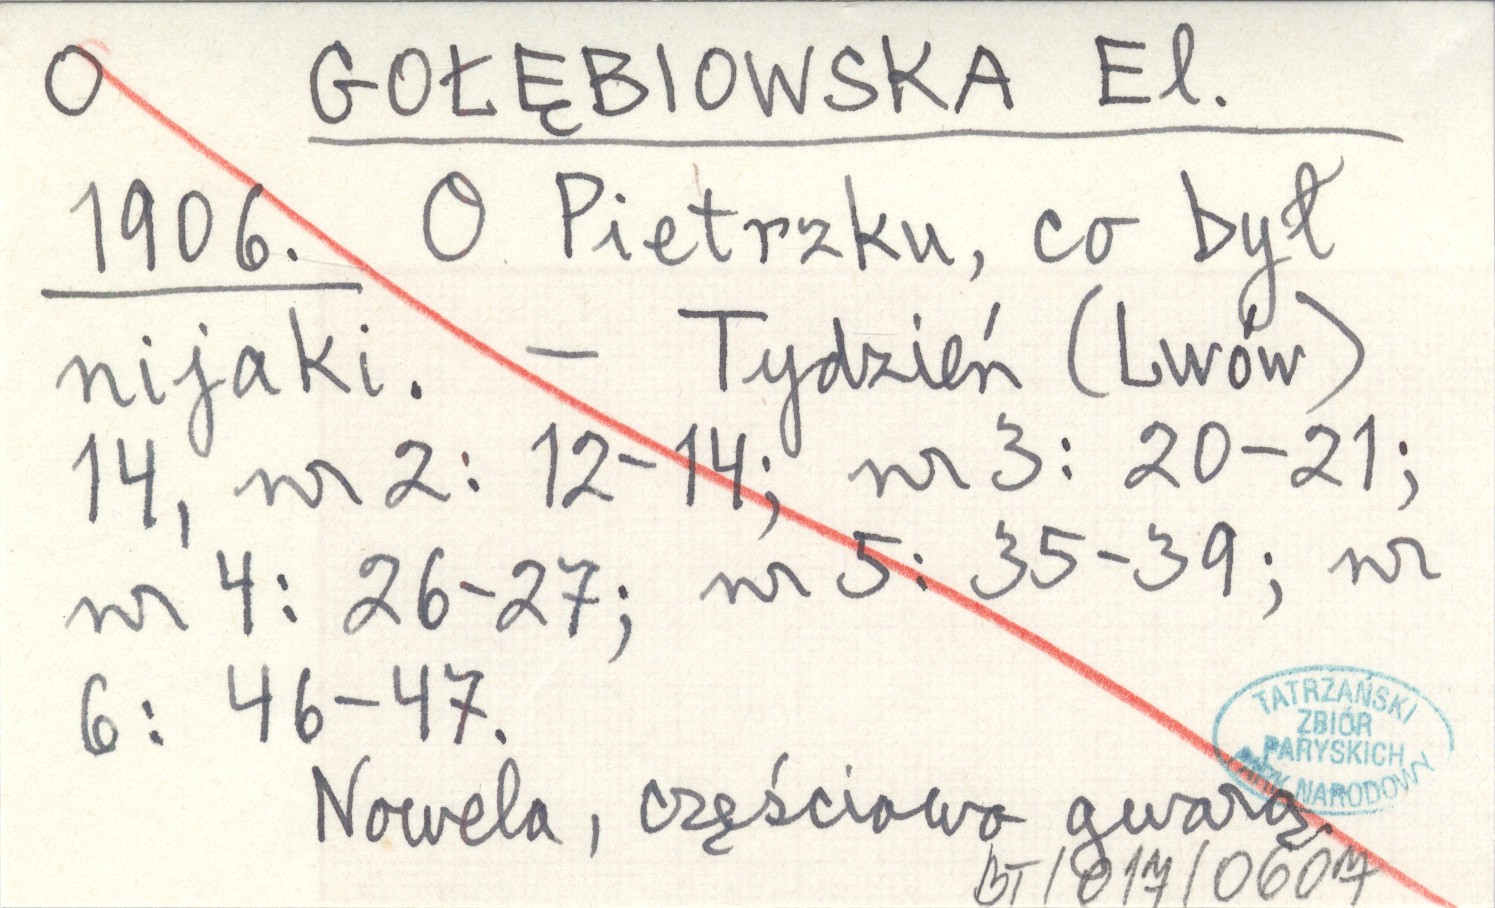 O GOŁĘBIOWSKA El.
1906. O Pietrzku, co był
nijaki. — Tydzień (Lwów)
14, nr 2: 12-14; nr 3: 20-21;
nr 4: 26-27; nr 5: 35-39; nr
6: 46-47.
TATRZAŃSKI
ZBIÓR
PARYSKICH
PARK NARODOWY
Nowela, częściowo gwarą.
BT/017/0607